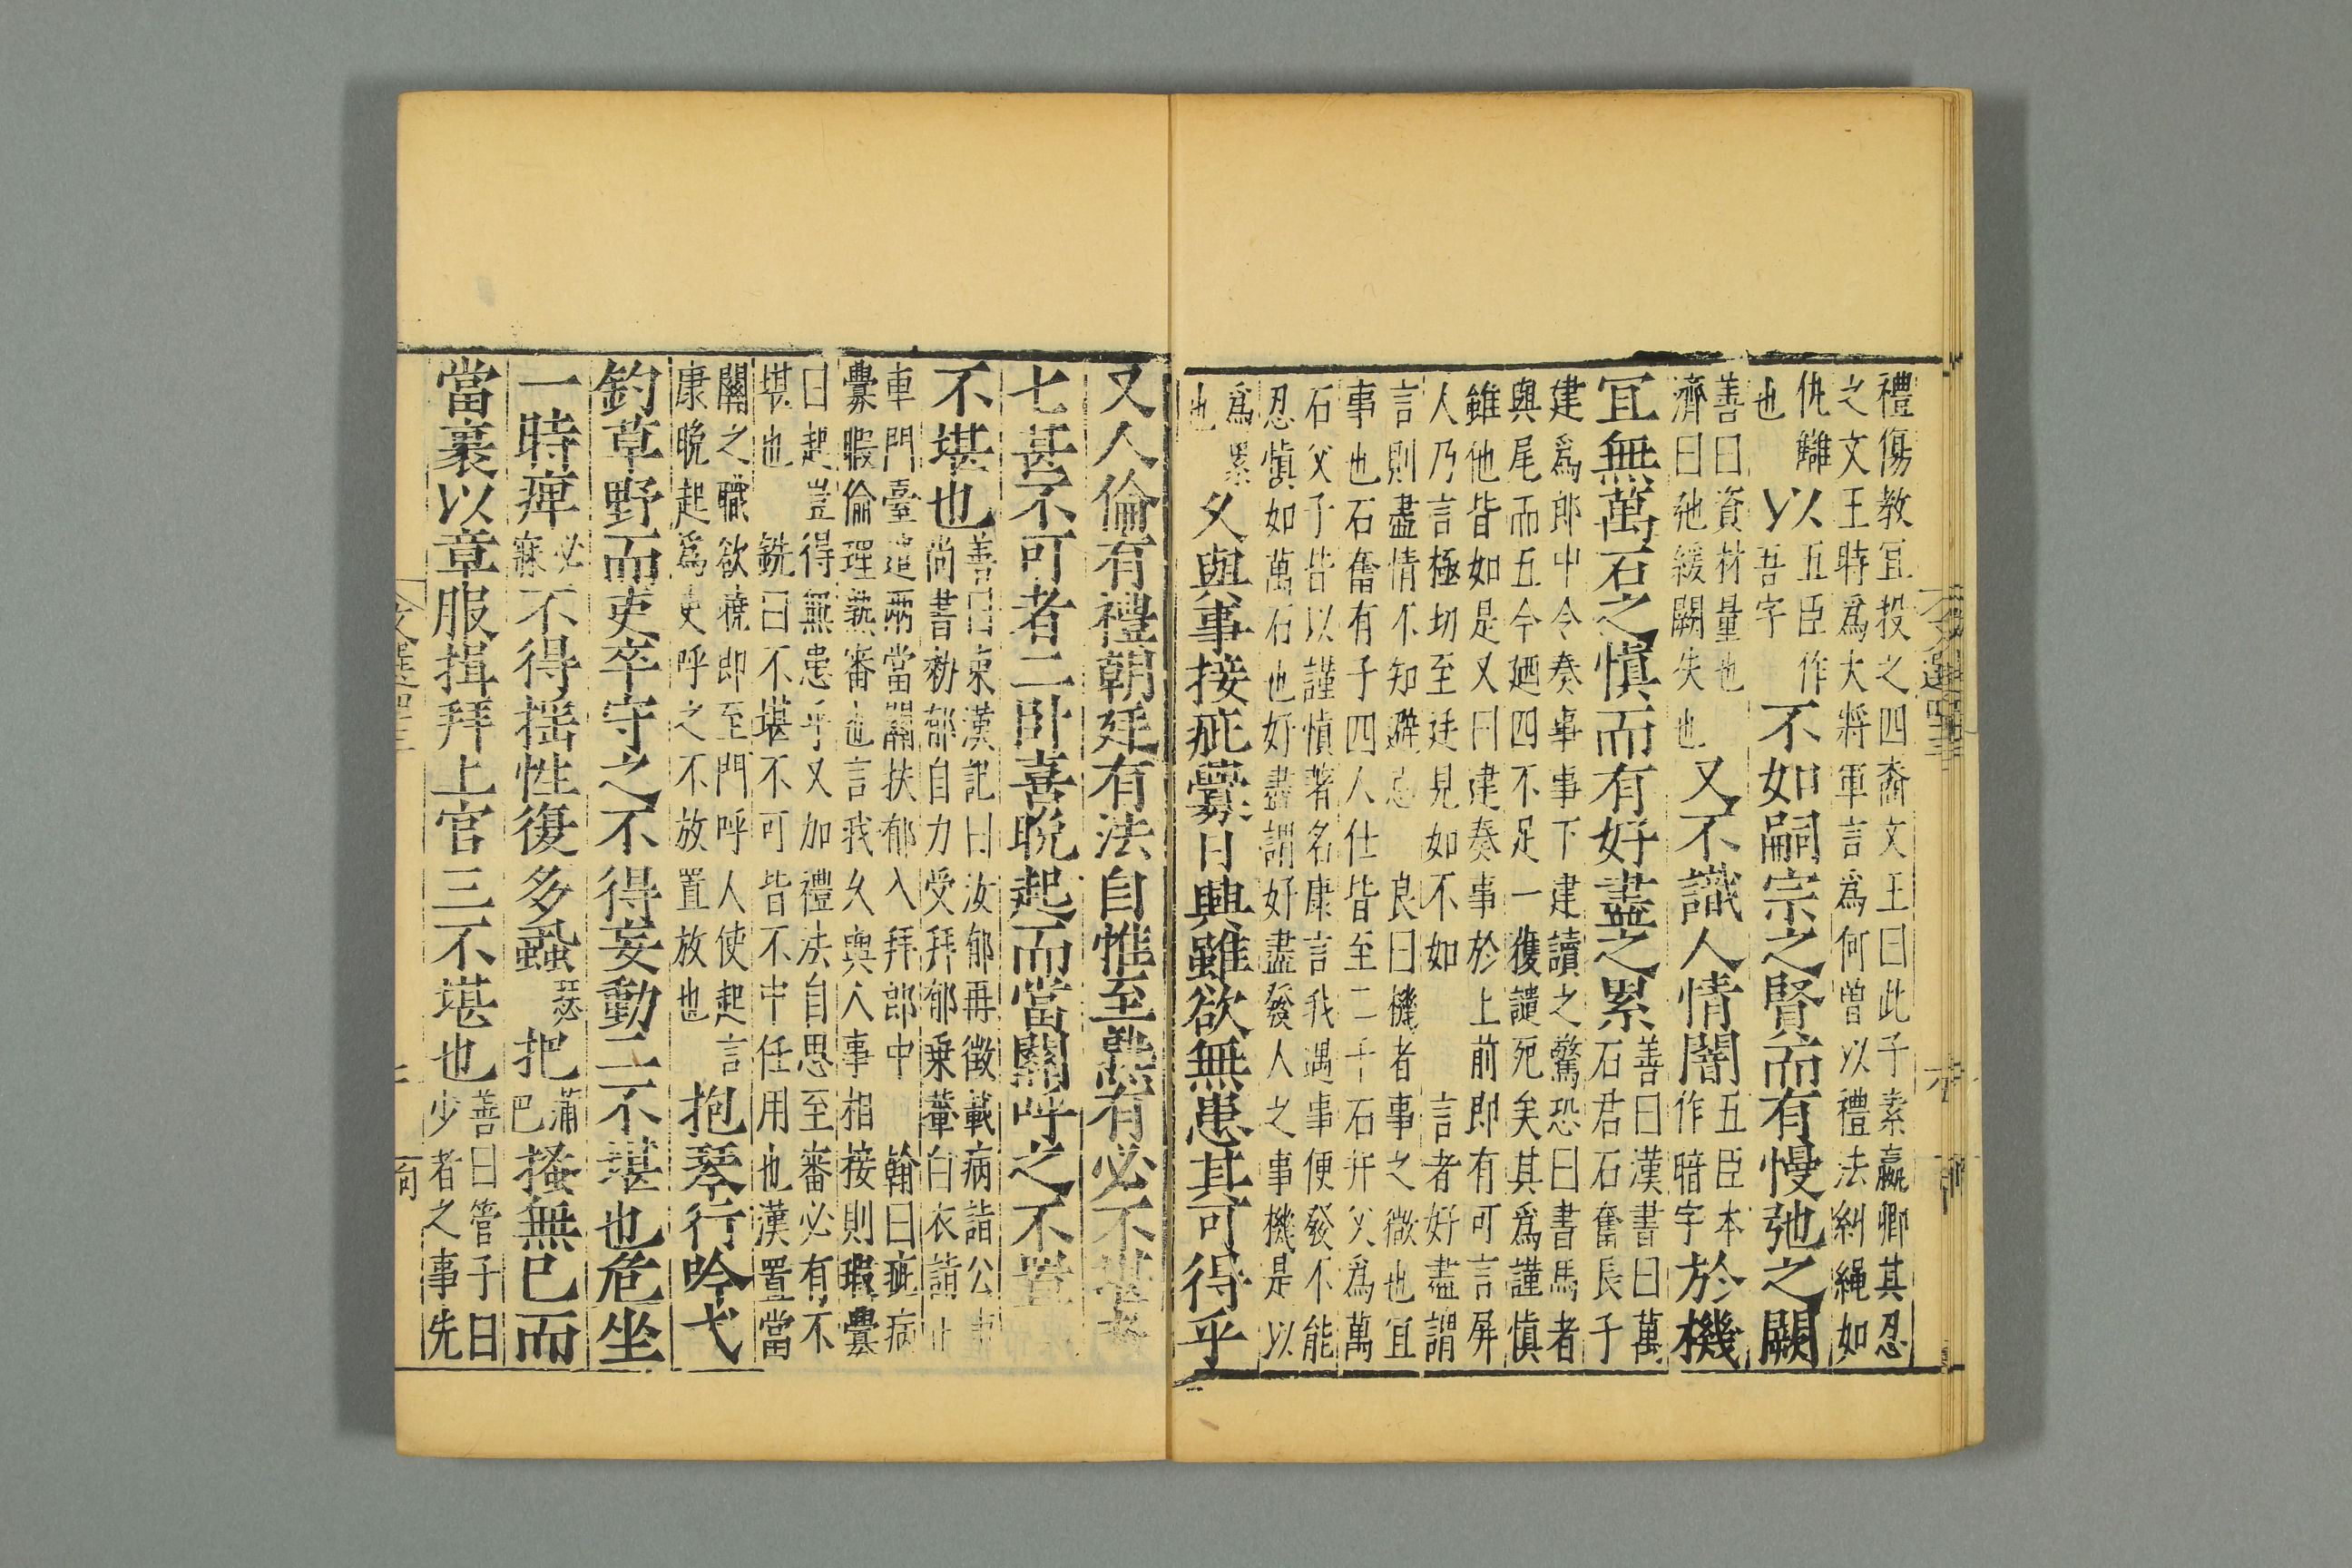 禮傷教宜投之四裔文王曰此子素羸卿其忍
之文王時爲大將軍言爲何曽以禮法糾繩如
仇讎以五臣作
也吾字不如嗣宗之賢而有慢弛之闕
善曰資材量也
濟曰弛緩闕失也又不識人情闇五臣本作暗字於機
宜無萬石之慎而有好盡之累善曰漢書曰萬石君石奮長子
建爲郎中令奏事事下建讀之驚恐曰書馬者
與尾而五今廼四不足一獲譴死矣其爲謹慎
雖他皆如是又曰建奏事於上前即有可言屏
人乃言極切至廷見如不如言者好盡謂
言則盡情不知避忌良曰機者事之微也宜
事也石奮有子四人仕皆至二千石并父爲萬
石父子皆以謹慎著名康言我遇事便發不能
忍慎如萬石也好盡謂好盡發人之事機是以
爲累也久與事接疵釁日興雖欲無患其可得乎
又人倫有禮朝廷有法自惟至熟有必不堪者
七甚不可者二卧喜晚起而當關呼之不置一
不堪也善曰東漢記曰汝郁再徵載病詣公車
尚書勑郁自力受拜郁乗輦白衣詣止
車門臺遣兩當關扶郁入拜郎中翰曰疵病
釁瑕倫理熟審也言我久與人事相接則瑕釁
日起豈得無患乎又加禮法自思至審必有不
堪也銑曰不堪不可皆不中任用也漢置當
關之職欲曉即至門呼人使起言
康晚起爲吏呼之不放置放也抱琴行吟弋
釣草野而吏卒守之不得妄動二不堪也危坐
一時痺必寐不得揺性復多蝨瑟把蒲巴搔無已而
當裹以章服揖拜上官三不堪也善曰管子曰少者之事先